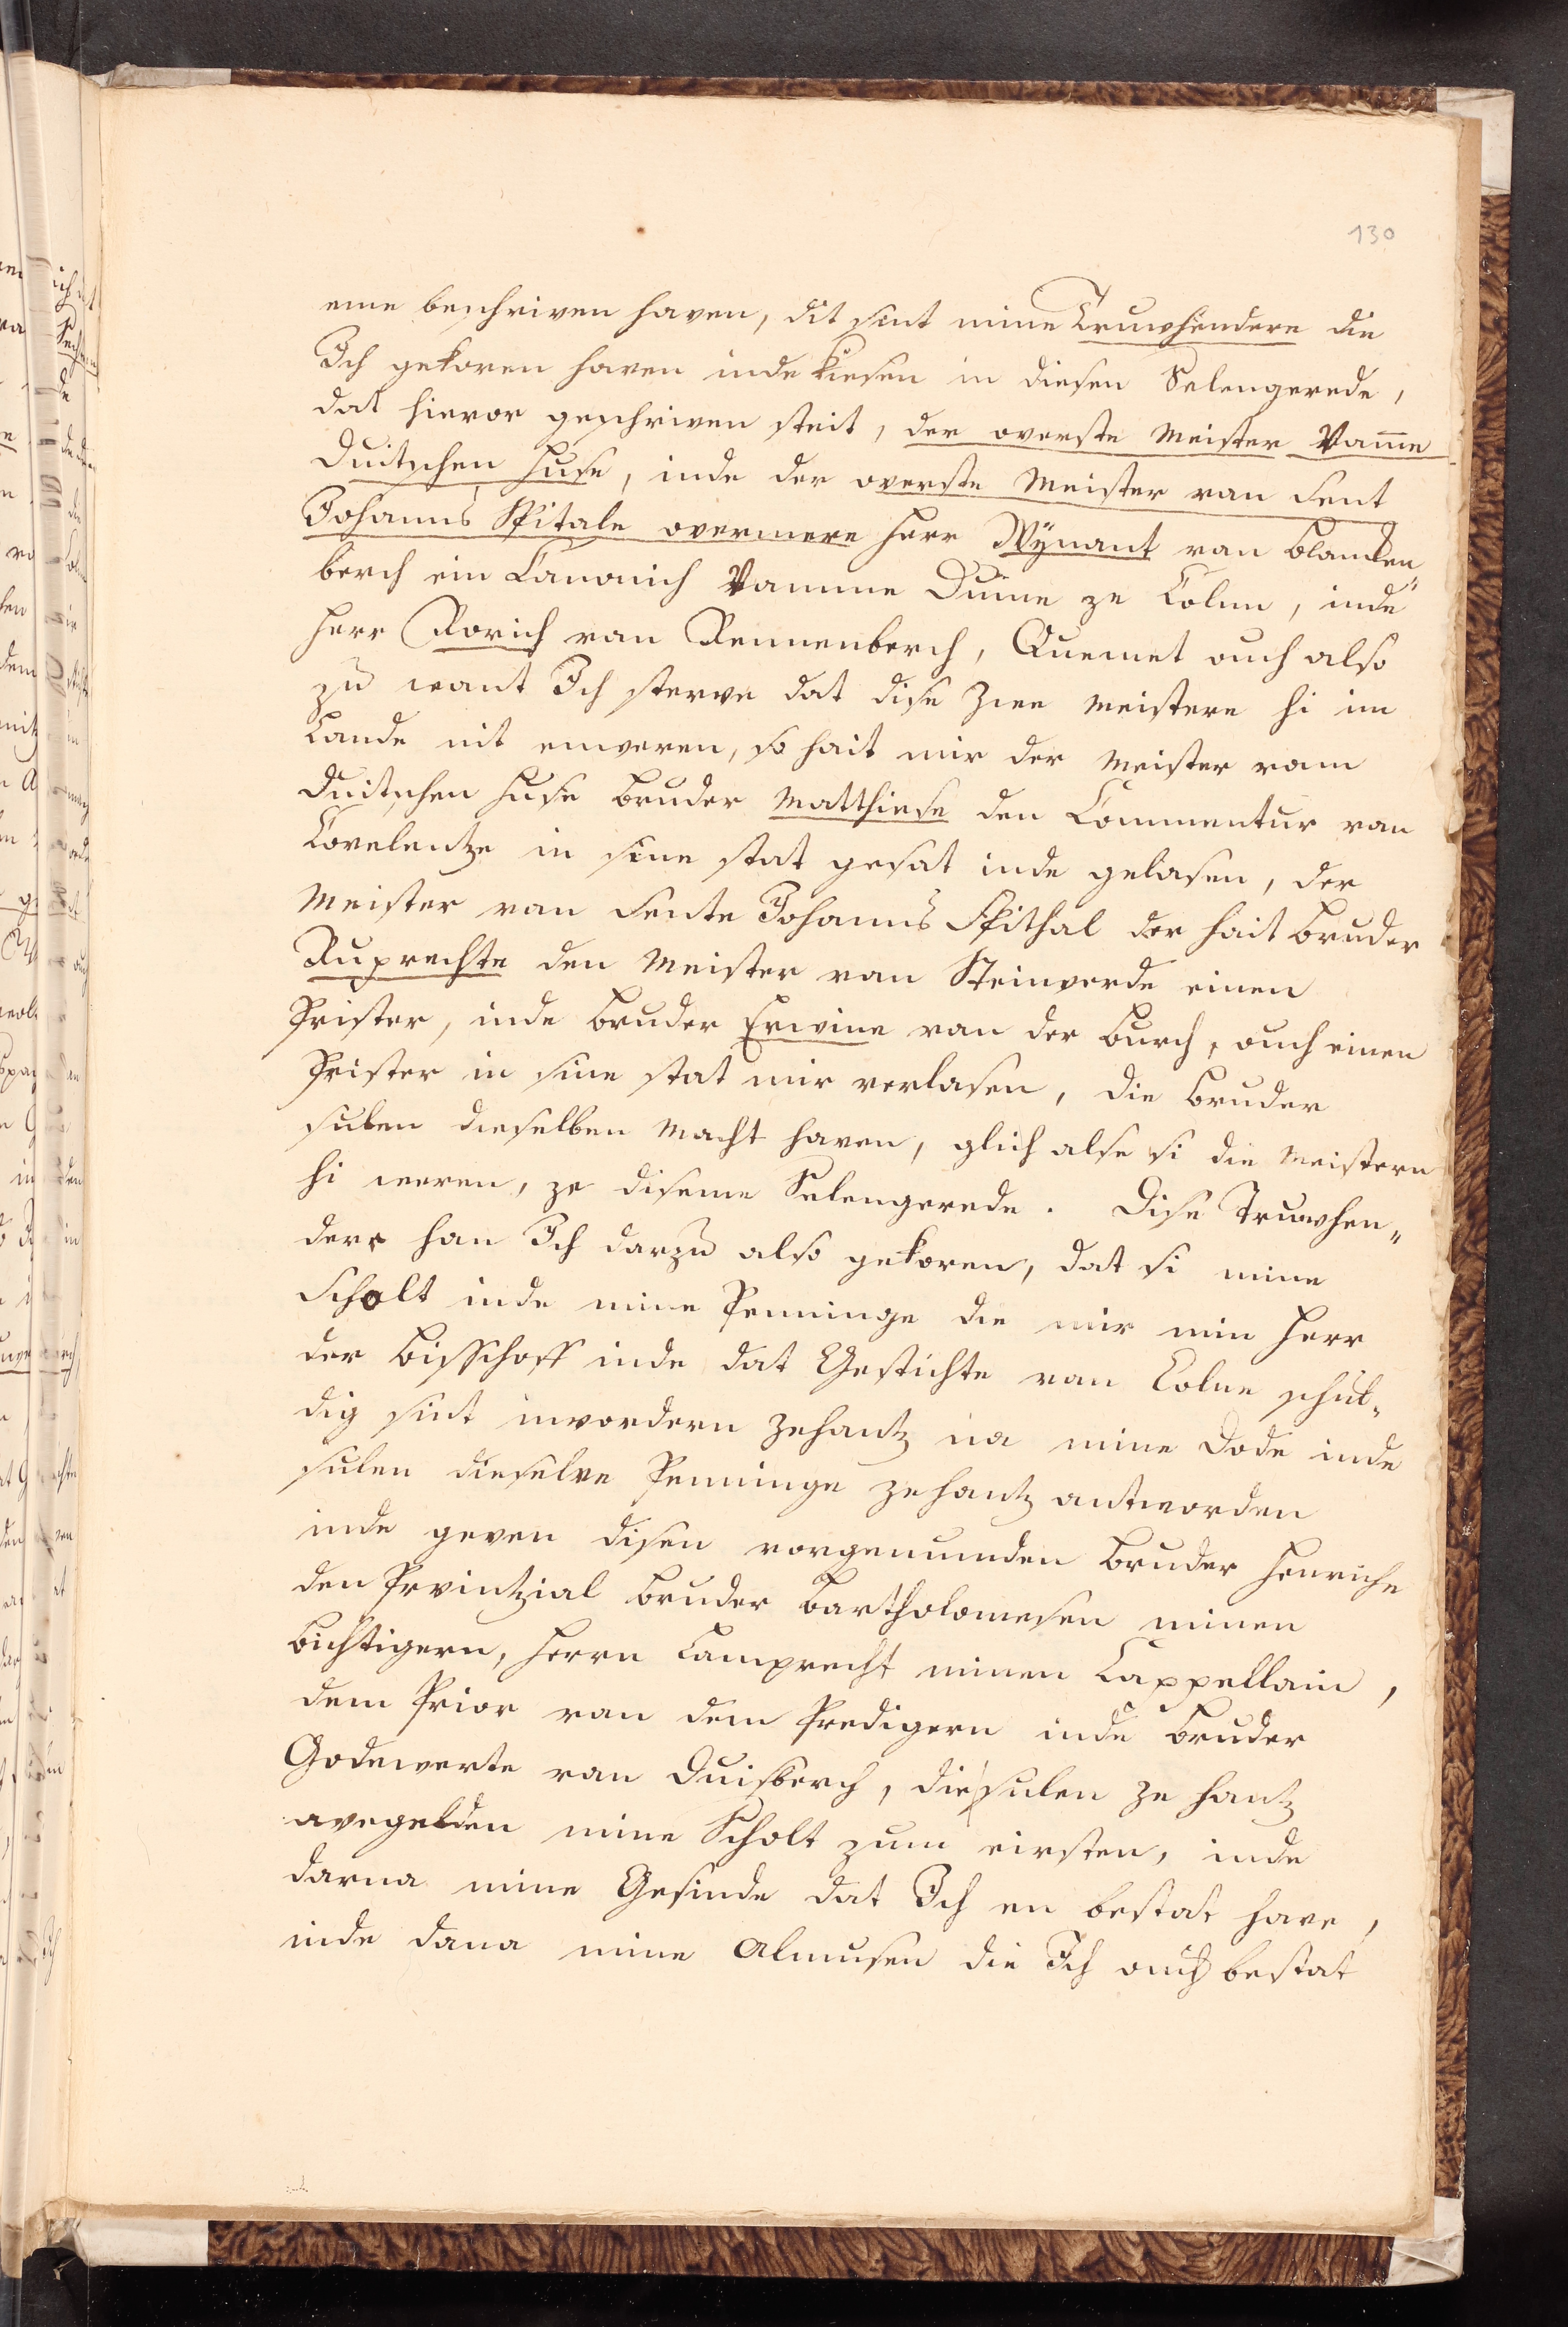 130
eme beschriven haven, dit sint mine Truwhendere die
Ich gekoren haven inde kiesen in diesen Selengerede,
dat hievor geschriven steit, der overste Meister Vam̄e
Duitschen Huse, inde der overste Meister van Sent
Johanns Spitale overmere Herr Wÿnant van Blanken„
berch ein Canonich Vamme Dume ze Colne, inde
Herr Rorich van Rennenberch, Quemet ouch also
zu want Ich sterve dat dise Zvee Meistere hi im
Lande nit enweren, so hait mir der Meister vam
Duitschen Huse Bruder Matthiese den Commentur van
Covelentze in sine stat gesat inde gelasen, der
Meister van Sente Johanns Spithal der hait Bruder
Ruprechte den Meister van Steinverde einen
Prister, inde Bruder Erwine van der Burch, ouch einen
Prister in sine stat mir verlasen, die Bruder
sulen dieselben Macht haven, glich alse si die Meistern
hi weren, ze diseme Selengerede. Dise Truwhen„
dere han Ich darzu also gekoren, dat si mine
Scholt inde mine Penninge die mir min Herr
der Bisschoff inde dat Gestichte van Colne schul„
dig sint invordern zehantz na mine Dode inde
sulen dieselve Penninge zehantz antworden
inde geven disen vorgenumden Bruder Henriche
den Prvintzial Bruder Bartholomesen minen
Bichtigern, Herrn Lamprecht minen Cappellain,
dem Prior van dem Predigern inde Bruder
Godeverte van Duisberch, die sulen ze hantz
avegelden mine Scholt zum eirsten, inde
darna mine Gesinde dat Ich en bestat have,
inde dana mine Almusen die Ich ouch bestat